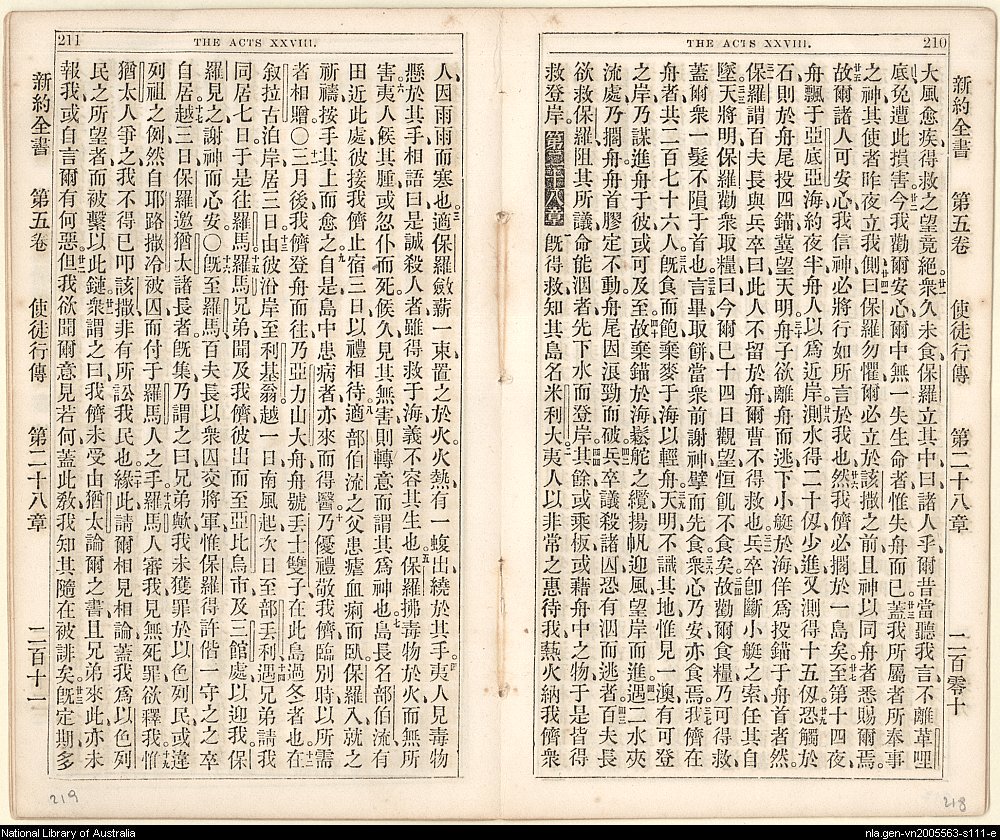 210
THE ACTS XXVIII.
新約全書　第五卷　使徒行傳　第二十八章　二百零十
大風愈疾、得救之望竟絕。衆久未食、保羅立其中、曰諸人乎、爾昔當聽我言、不離革哩
底、免遭此損害、今我勸爾安心、爾中無一失生命者、惟失舟而已、蓋我所屬者所奉事
之神、其使者昨夜立我側、曰保羅勿懼、爾必立於該撒之前、且神以同舟者悉賜爾焉、
故爾諸人可安心、我信神必將行如所言於我也、然我儕必擱於一島矣、至第十四夜、
舟飄于亞底亞海、約夜半、舟人以爲近岸、測水得二十仭、少進又測得十五仭、恐觸於
石、則於舟尾投四錨、冀望天明、舟子欲離舟而逃、下小艇於海、佯爲投錨于舟首者然。
保羅謂百夫長與兵卒曰、此人不留於舟、爾曹不得救也、兵卒卽斷小艇之索、任其自
墜、天將明、保羅勸衆取糧、曰今爾已十四日觀望恒飢不食矣、故勸爾食糧、乃可得救、
蓋爾衆一髮不隕于首也、言畢、取餅當衆前謝神、擘而先食、衆心乃安、亦食焉、我儕在
舟者、共二百七十六人、旣食而飽、棄麥于海以輕舟、天明、不識其地、惟見一澳、有可登
之岸、乃謀進舟于彼、或可及至、故棄錨於海、鬆舵之纜、揚帆迎風、望岸而進、遇二水夾
流處、乃擱舟、舟首膠定不動、舟尾因浪勁而破、兵卒議殺諸囚、恐有泅而逃者、百夫長
欲救保羅、阻其所議、命能泅者、先下水而登岸、其餘或乘板、或藉舟中之物、于是皆得
救登岸。第二十八章　旣得救、知其島名米利大、夷人以非常之惠待我、爇火納我儕衆
211
THE ACTS XXVIII.
人、因雨雨而寒也、適保羅斂薪一束、置之於火、火熱有一蝮出、繞於其手、夷人見毒物
懸於其手、相語曰、是誠殺人者、雖得救于海、義不容其生也、保羅拂毒物於火而無所
害、夷人候其腫、或忽仆而死、候久、見其無害、則轉意而謂其爲神也、島長名部伯流、有
田近此處、彼接我儕止宿三日、以禮相待、適部伯流之父、患瘧血痢而臥、保羅入就之、
祈禱、按手其上而愈之、自是島中患病者、亦來而得醫、乃優禮敬我儕、臨別時以所需
者相贈、〇三月後、我儕登舟而往、乃亞力山大舟、舟號丟士雙子、在此島過冬者也、在
叙拉古泊岸、居三日、由彼沿岸至利基翁、越一日、南風起、次日至部丟利、遇兄弟請我
同居七日、于是往羅馬、羅馬兄弟聞及我儕、彼出而至亞比烏市、及三館處、以迎我、保
羅見之、謝神而心安、〇旣至羅馬、百夫長以衆囚交將軍、惟保羅得許偕一守之之卒
自居、越三日、保羅邀猶太諸長者、旣集、乃謂之曰、兄弟歟、我未獲罪於以色列民、或違
列祖之例、然自耶路撒冷被囚、而付于羅馬人之手、羅馬人審我、見無死罪、欲釋我、惟
猶太人爭之、我不得已叩該撒、非有所訟我民也、緣此請爾相見相論、蓋我爲以色列
民之所望者、而被繫以此鏈、衆謂之曰、我儕未受由猶太論爾之書、且兄弟來此、亦未
報我、或自言爾有何惡、但我欲聞爾意見若何、蓋此敎、我知其隨在被誹矣、旣定期、多
新約全書　第五卷　使徒行傳　第二十八章　二百十一
219
218
National Library of Australia
nla.gen-vn2005563-s111-e